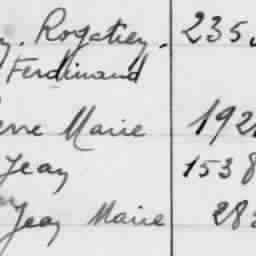 y. Rogatien. 235
Ferdinand
erre Marie 192
Jean 1538
Jean Marie 28